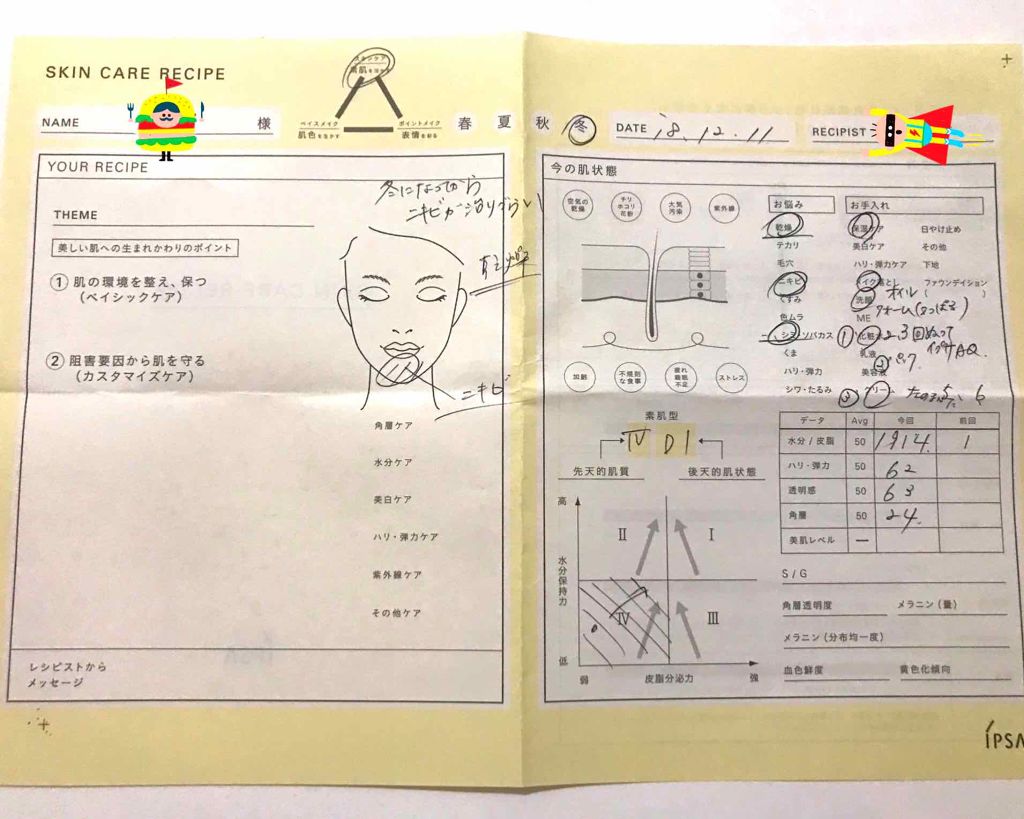 SKIN CARE RECIPE
スキンケア
素肌を活かす
ベイスメイク
肌色を生かす
ポイントメイク
表情を彩る
NAME 様
春 夏 秋 冬
DATE '18.12.11
RECIPIST
YOUR RECIPE
冬になってから
ニキビが治りずらい
THEME
美しい肌への生まれかわりのポイント
① 肌の環境を整え、保つ
(ベイシックケア)
② 阻害要因から肌を守る
(カスタマイズケア)
乾燥
ニキビ
角層ケア
水分ケア
美白ケア
ハリ・弾力ケア
紫外線ケア
その他ケア
レシピストから
メッセージ
今の肌状態
空気の乾燥
チリ ホコリ 花粉
大気汚染
紫外線
加齢
不規則な食事
疲れ 睡眠不足
ストレス
お悩み
乾燥
テカリ
毛穴
ニキビ
くすみ
色ムラ
シミ・ソバカス
くま
ハリ・弾力
シワ・たるみ
お手入れ
保湿ケア 日やけ止め
美白ケア その他
ハリ・弾力ケア 下地
メイク落とし ファウンデイション
オイル ( )
洗顔 フォーム(さっぱり)
ME
① 化粧水 2、3回ぬって
イプサAQ.
乳液
② パック.
美容液
③ クリーム
素肌型
IV D1
先天的肌質
後天的肌状態
データ Avg 今回 前回
水分 / 皮脂 50 19 14. 1
ハリ・弾力 50 62
透明感 50 63
角層 50 24.
美肌レベル —
高
水分保持力
低
弱 皮脂分泌力 強
II I
IV III
S / G
角層透明度 メラニン (量)
メラニン (分布均一度)
血色鮮度 黄色化傾向
IPSA